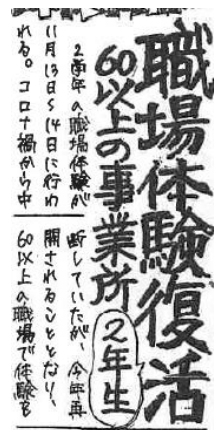 職場体験復活
60以上の事業所
2年生
2学年の職場体験が
11月13日〜14日に行わ
れる。コロナ禍から中
断していたが、今年再
開されることとなり、
60以上の職場で体験を